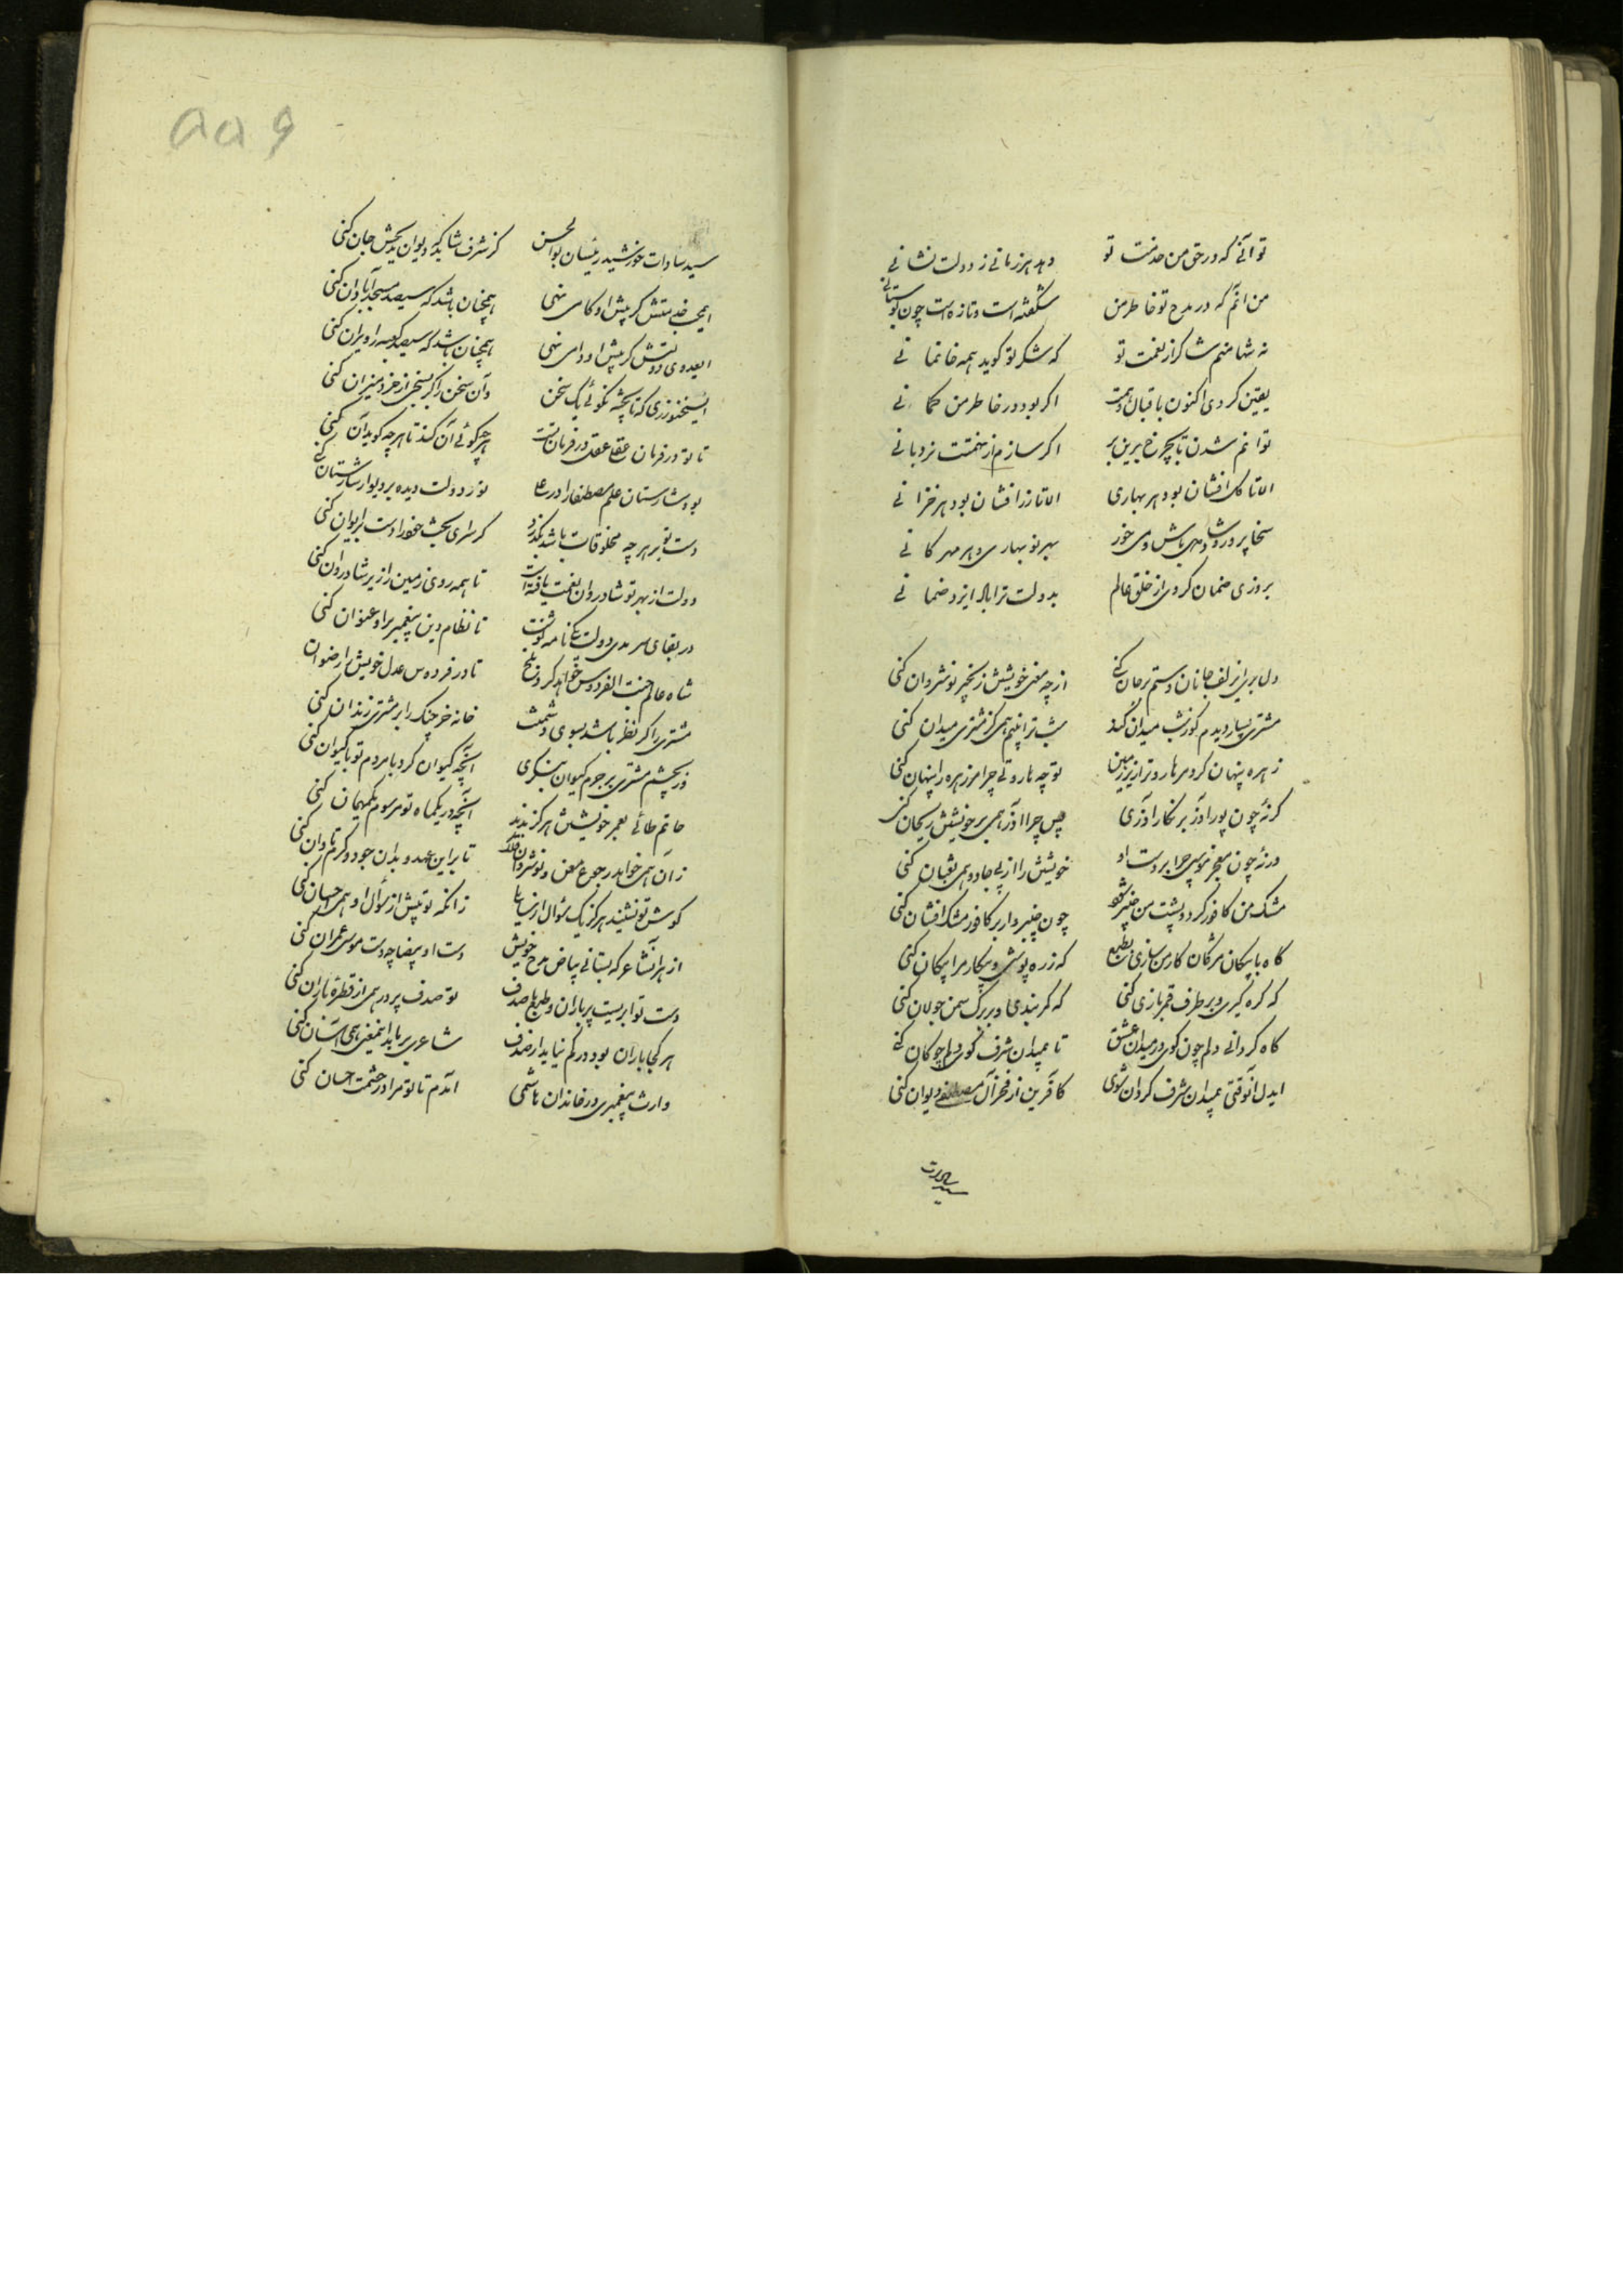 تو آنی که در حق من خدمت تو دهد هر زمانی ز دولت نشانی
من آنم که در مدح تو خاطر من شکفته است و تازه است چون بوستانی
نه تنها منم شاکر از نعمت تو که شکر تو گوید همه خانمانی
یقین کردی اکنون باقبال و همت اگر بود در خاطر من گمانی
توانم شدن تا بچرخ برین بر اگر سازم از همتت نردبانی
الا تا گل افشان بود هر بهاری الا تا زر افشان بود هر خزانی
سخا پرور و شاد می باش و می خور بهر نوبهاری و هر مهرگانی
بروزی ضمان کردی از خلق عالم بدولت ترا باد ایزد ضمانی
دل بری از زلف جانان و ستم بر جان کنی از چه معنی خویشتن زنجیر نوشروان کنی
مشتری بسیار دیدم کو ز شب میدان کند شب ترا بینم همی کز مشتری میدان کنی
زهره پنهان کرد مر هاروت را زیر زمین تو چه هاروتی چرا مر زهره را پنهان کنی
گر نهٔ چون پور آذر بر نگار آذری پس چرا آذر همی بر خویشتن ریحان کنی
ور نهٔ چون معجز موسی چرا بر دست او خویشتن را از پی جادو همی ثعبان کنی
مشک من کافور کرد و پشت من چنبر چون چنبر وار بر کافور مشک افشان کنی
گاه با پیکان مژگان کار من سازی که زره پوشی و پیکار مرا پیکان کنی
که گره گیری و بر طرف قمر بازی کنی که کمر بندی و بر برگ سمن جولان کنی
گاه گردانی دلم چون گوی در میدان عشق تا بمیدان شرف گوی دلم چوگان کنی
ایدل آنوقتی بمیدان شرف گردان شوی کافرین از فخر آل مصطفی دیوان کنی
سید سادات
۵۵۹
سید سادات خورشید رئیسان بوالحسن کز شرف شاید که دیوان مدیحش جان کنی
ای بخدمتش گر پیش او گامی نهی همچنان باشد که سیصد مسجد آبادان کنی
ای عدوی دولتش گر پیش او دامی نهی همچنان باشد که سیصد کعبه را ویران کنی
ای سخنورزی که تا پخته نگوئی یک سخن وآن سخن را گر بسنجی از خرد میزان کنی
تا تو در فرمان عقلی عقل در فرمان تست هر چه گوئی آن کند تا هر چه گوید آن کنی
بود شارستان علم مصطفی را در علی تو ز دولت دیده بر دیوار شارستان کنی
دست تو بر هر چه مخلوقات باشد بگذرد گر سرای بخت خود را دست بر ایوان کنی
دولت از بهر تو شادروان نعمت بافته است تا همه روی زمین را زیر شادروان کنی
در بقای سرمدی دولت یکی نامه نوشت تا نظام دین پیغمبر برو عنوان کنی
شاه عالم جنت الفردوس خواهد کرد بلخ تا در فردوس عدل خویش را رضوان
مشتری را گر نظر باشد بسوی دشمنت خانه خرچنگ را بر مشتری زندان کنی
ور بچشم مشتری بر جرم کیوان بنگری آنچه کیوان کرد با مردم تو با کیوان کنی
حاتم طائی بعمر خویشتن هرگز ندید آنچه در یکماه تو مرسوم یک مهمان کنی
زآن همی خواهد رجوع معن و نوشروان فلک تا بر این عهد و بدان جود و کرم تاوان کنی
گوش تو نشنید هرگز یک سؤال از زانکه تو پیش از سؤال او همی احسان کنی
از هر آن شاعر که بستانی بیاض مدح خویش دست او بیضا چو دست موسی عمران کنی
دست تو ابریست پر باران و طبع ما صدف تو صدف پر در همی از قطرهٔ باران کنی
هر کجا باران بود در کم نیاید از صدف شاعری بر ما بدین معنی همی آسان کنی
وارث پیغمبری در خاندان هاشمی آمدم تا تو مرا در حشمت حسان کنی